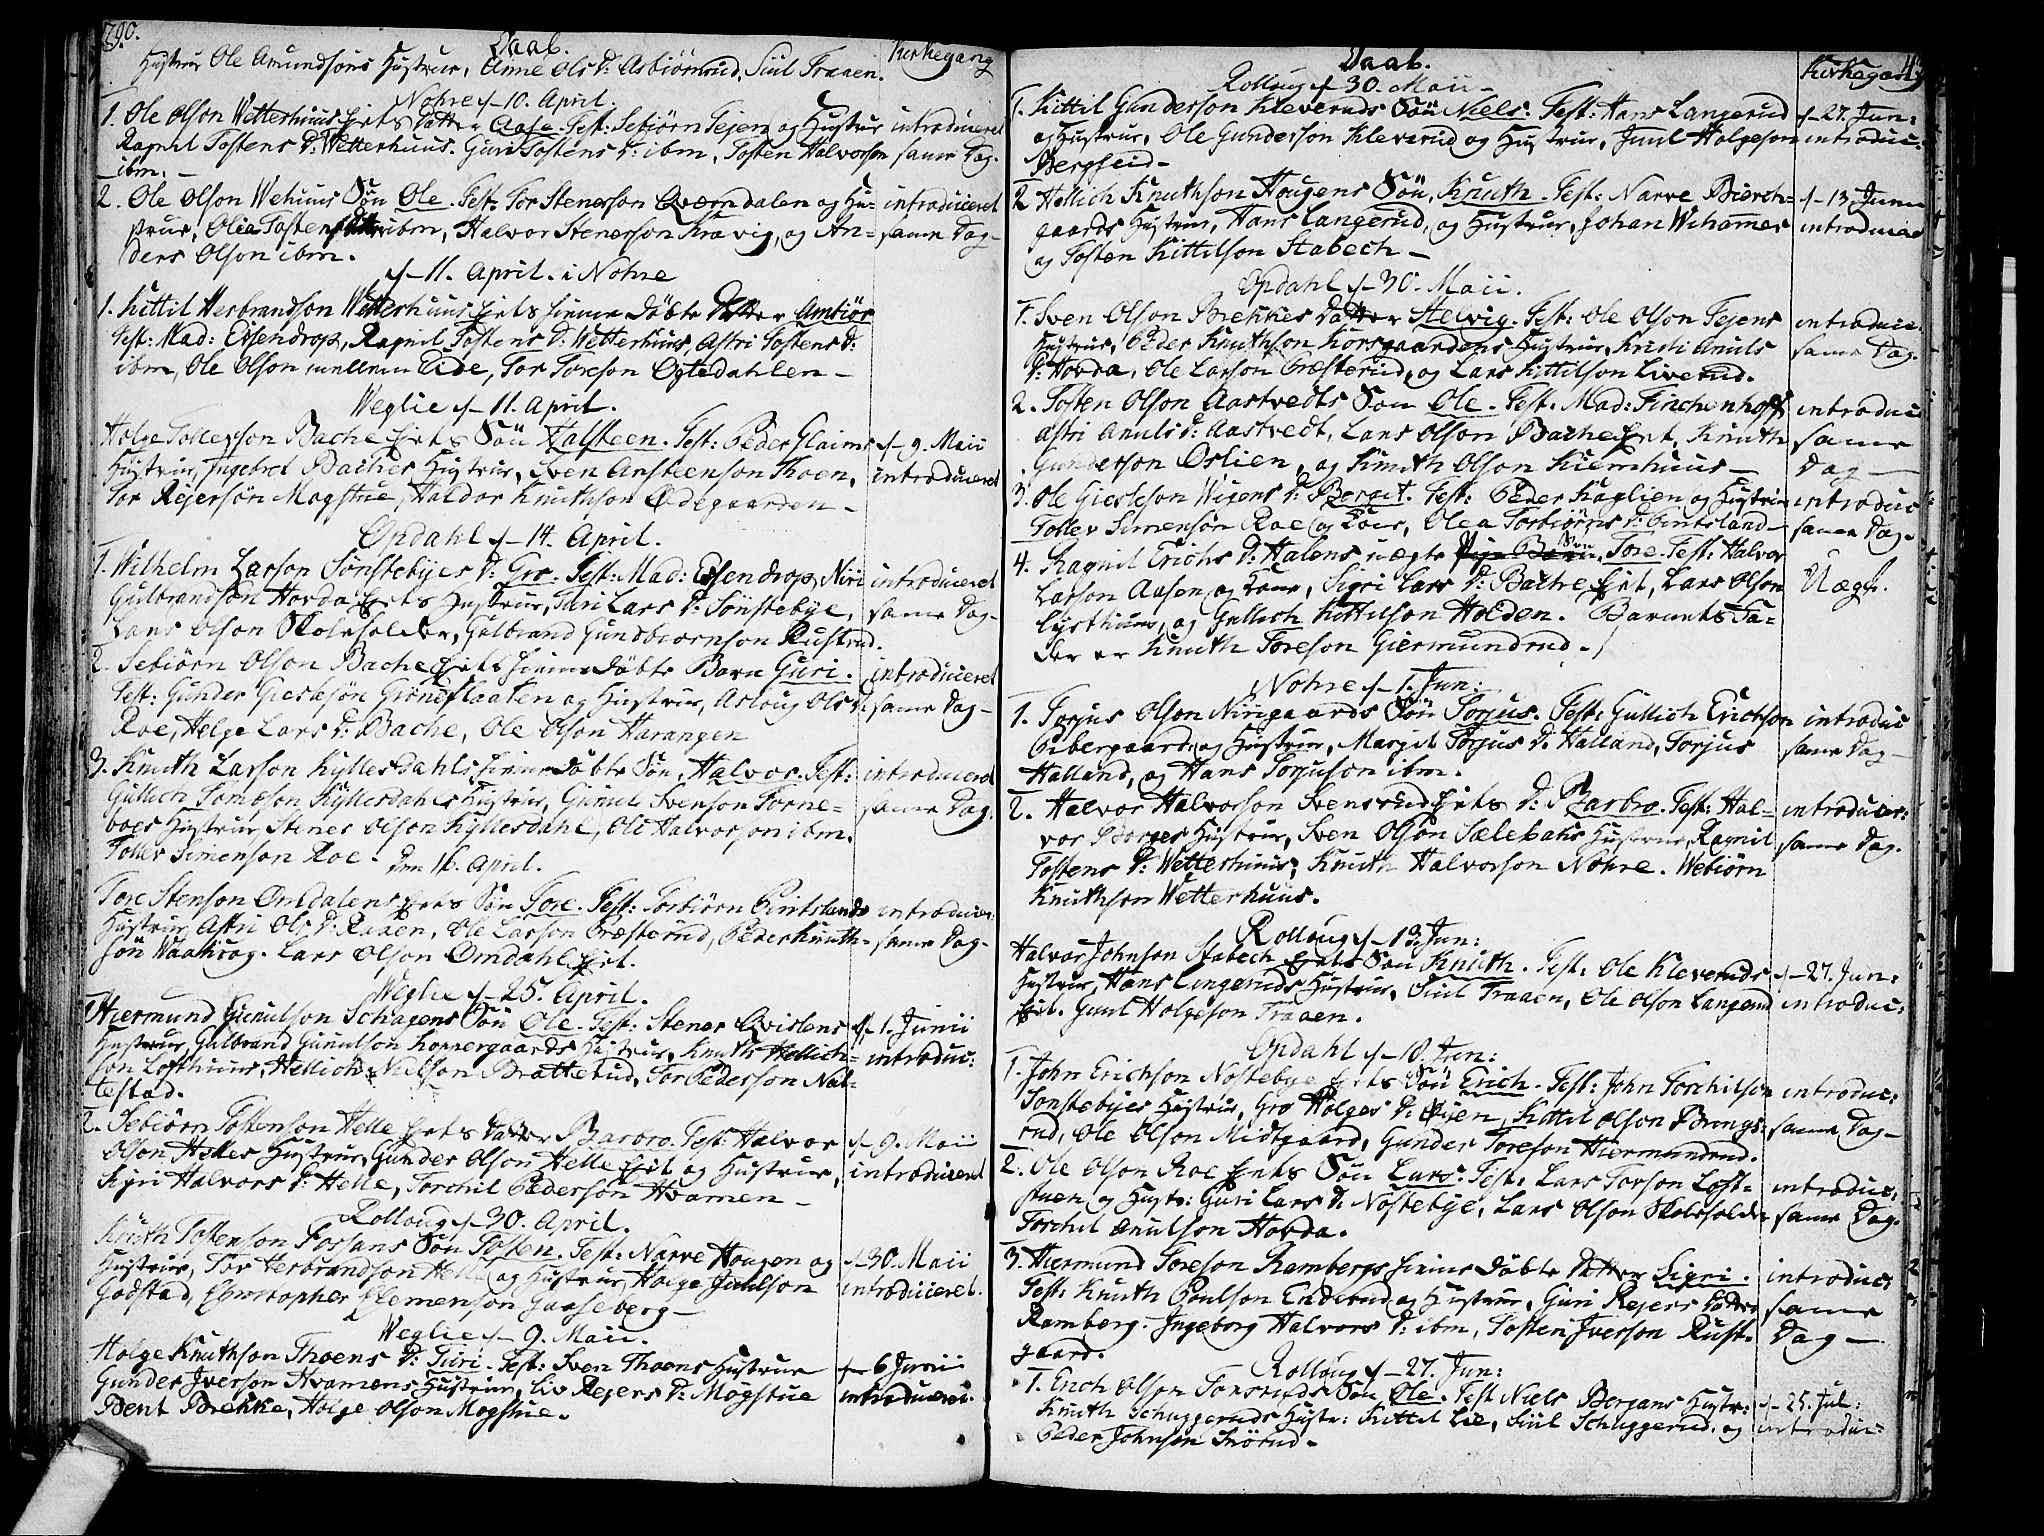 1790.
Daab.
Kirkegang
Hustrue Ole Amundsons Hustrue, Anne Ols D: Asbiörnrud, Siul Traaen.
Nohre d. 10. April.
1. Ole Olson Wetterhuus Eiets Datter Aase. Test: Sebiörn Tejen og Hustrue introduceret
Ragnil Tostens D: Wetterhuus. Guri Tostens D: ibm, Tosten Halvorson same Dag.
ibm. -
2. Ole Olson Wehuus Sön Ole. Test: Tor Stenerson Qverndalen og Hu= introduceret
strue, Olea Tostens Datter ibm, Halvor Stenerson Kravig, og An= same Dag-
ders Olson ibm.
d. 11. April. i Nohre
1. Kittil Herbrandson Wetterhuus Eiets hiemmedöbte Datter Ambiör
Test: Mad: Essendrop, Ragnil Tostens D: Wetterhuus, Astri Tostens D:
ibm, Ole Olson mellem Eide, Tor Toreson Ögtedahlen -
Weglie d. 11. April.
Holge Tollefson Bache Eiets Sön Halsteen. Test: Peder Glaims d. 9. Maii
Hustrue, Ingebret Baches Hustrue, Sven Ansteenson Thoen, introduceret
Tor Rejerson Mogstue, Haldor Knuthson Ödegaarden -
Opdahl d. 14. April.
1. Wilhelm Larson Sönstebyes D: Gro. Test: Mad: Essendrop, Niri introduceret
Gulbrandson Hovda Eiets Hustrue, Turi Lars D: Sönstebye, same Dag-
Lars Olson Skoleholder, Gulbrand Gundbiornson Rustrud.
2. Sebiörn Olson Bache Eiets hiemmedöbte Barn Guri. introduceret
Test: Gunder Giesleson Gröneflaaten og Hustrue, Asloug Ols D: same Dag-
Roe, Helge Lars D: Bache, Ole Olson Harangen
3. Knuth Larson Kyllesdahls hiemmedöbte Sön, Halvor. Test: introduceret
Gullich Tomeson Kyllesdahls Hustrue, Gunul Svenson Torne= same Dag.
boes Hustrue, Stener Olson Kyllesdahl, Ole Halvorson ibm.
Tollev Simenson Roe. Den 16. April.
Tore Stenson Omdalens Eiets Sön Tore. Test: Torbiörn Pintslends introduce:
Hustrue, Astri Ols D: Raaen, Ole Larson Præsterud, Peder Knuth= same Dag-
sön Waakrag. Lars Olson Omdahl Eiet.
Weglie d. 25. April.
1. Hiermund Gunulson Schagens Sön Ole. Test: Stener Qvislens d. 1. Junii
Hustrue, Gulbrand Gunulson Koppergaards Hustrue, Knuth Hellich= introduc:
son Lofthuus, Hellich Nielson Bratterud, Tor Pederson Nal=
testad.
2. Sebiörn Tostenson Helle Eiets Datter Barbro. Test: Halvor d. 9. Maii
Olson Askes Hustrue, Gunder Olson Helle Eiet og Hustrue, introduceret
Kyri Halvors D: Helle, Torchil Pederson Hvamen -
Rolloug d. 30. April.
Knuth Tostenson Fossans Sön Tosten. Test: Narve Hougen og d. 30. Maii
Hustrue, Tor Herbrandson Helle og Hustrue, Holge Juulson introduceret.
Godstad, Christopher Clemenson Gaaseberg -
Weglie d. 9. Maii.
Holge Knuthson Thoens D: Turi. Test: Sven Thoens Hustrue d. 6 Junii
Gunder Iverson Hvamens Hustrue, Liv Rejers D: Mogstue introduceret.
Bent Brekke, Holge Olson Mogstue.
Daab.
Kirkegang
Rolloug d. 30. Maii -
1. Kittil Gunderson Kleveruds Sön Niels. Test: Hans Langerud d. 27. Jun:
og Hustrue, Ole Gunderson Kleverud og Hustrue, Juul Holgeson introduc:
Bergseid -
2 Hellich Knuthson Hougens Sön, Knuth. Test: Narve Bierch= d. 13 Junii
gaards Hustrue, Hans Langerud, og Hustrue, Johan Wehames introduce
og Tosten Kittilson Stabech -
Opdahl d. 30. Maii.
1. Sven Olson Brekkes Datter Helvig. Test: Ole Olson Tejens introduce.
Hustrue, Peder Knuthson Korsgaardens Hustrue, Kristi Anuls same Dag-
D: Hovda, Ole Larson Præsterud, og Lars Kittilson Liverud.
2. Tosten Olson Aastvedts Son Ole. Test: Mad: Finchenhoff introduc
Astri Anuls D: Aastvedt, Lars Olson Bache Eiet, Knuth same
Gunderson Öslien, og Knuth Olson Kiemhuus - Dag -
3. Ole Giesleson Wigens D: Bergit. Test: Peder Haglien og Hustrue introduc
Tollev Simenson Roe og Kone, Olea Torbiörns D: Pintsland- same Dag-
4. Ragnil Erichs D: Halens uægte Pige Barn Sön, Tore. Test: Halvor
Larson Aasen og Kone, Sigri Lars D: Bache Eiet, Lars Olson Uægt.
Lysthuus, og Gullich Kittilson Holden. Barnets Fa=
der er Knuth Toreson Giermundrud -
Nohre d. 1. Jun:
1. Torjus Olson Nirigaards Sön Torjus. Test: Gullich Erichson introduc
Bibergaard, og Hustrue, Margit Torjus D: Halland, Torjus same Dag-
Halland, og Hans Torjuson ibm.
2. Halvor Halvorson Svensrud Eiets D: Barbro. Test: Hal= introduce:
vor Borges Hustrue, Sven Olson Sælebaks Hustrue, Ragnil same Dag.
Tostens D: Wetterhuus, Knuth Halvorson Nohre. Webiörn
Knuthson Wetterhuus.
Rolloug d. 13. Jun:
Halvor Johnson Stabech Eiets Son Knuth. Test: Ole Kleveruds d. 27. Jun:
Hustrue, Hans Langeruds Hustrue, Siul Traaen, Ole Olson Langerud introduc:
Eiet. Gunul Holgeson Traaen.
Opdahl d. 18. Jun:
1. John Erichson Nöstebye Eiets Sön Erich. Test: John Torchilson introduc:
Sönstebyes Hustrue, Gro Holges D: Öyen, Kittil Olson Brengs= same Dag-
rud, Ole Olson Midtgaard, Gunder Toreson Hiermundrud.
2. Ole Olson Roe Eiets Sön Lars. Test: Lars Torson Loft= introduc:
stuen og Hustr: Guri Lars D: Nöstebye, Lars Olson Skoleholder same Dag.
Torchil Anulson Hovda.
3. Hiermund Toreson Rambergs hiemedöbte Datter Sigri. introduc:
Test: Knuth Poulson Enderud og Hustrue, Guri Rejers Datter same
Ramberg. Ingeborg Halvors D: ibm, Tosten Iverson Rust= Dag -
gaard.
Rolloug d. 27. Jun:
1. Erich Olson Tonsruds Sön Ole. Test Niels Bergans Hustr: d. 25. Jul:
Knuth Schuggeruds Hustr: Kittil Lie, Siul Schuggerud, og introduc:
Peder Johnson Snörud -